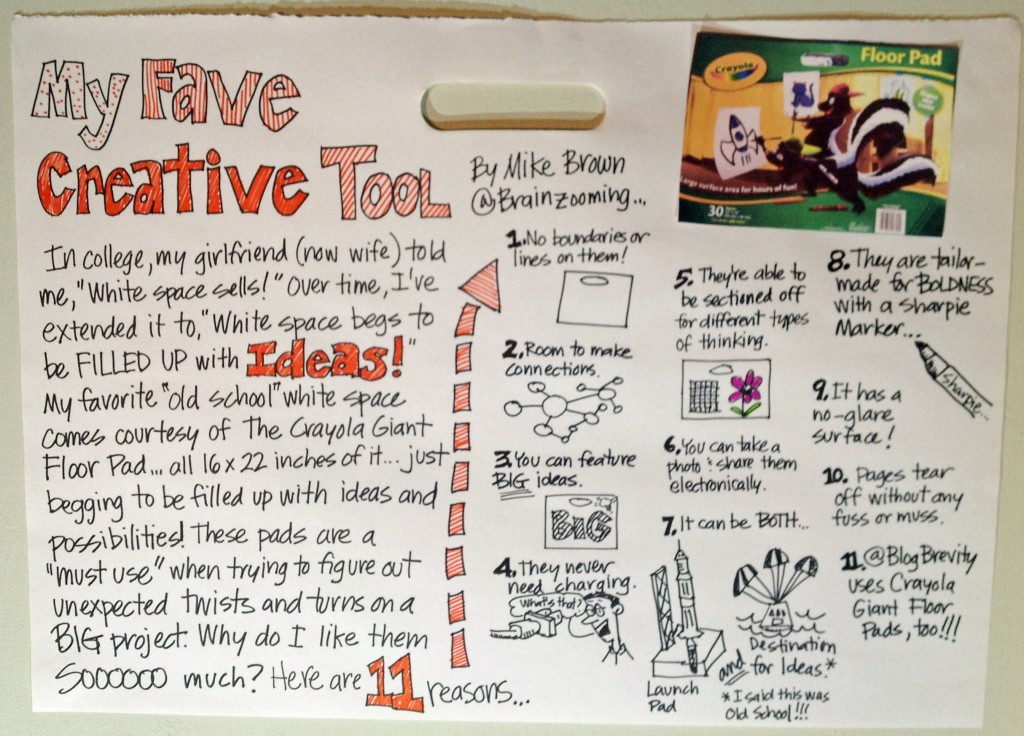 My Fave
Creative Tool
By Mike Brown
@Brainzooming...
In college, my girlfriend (now wife) told
me, "White space sells!" Over time, I've
extended it to, "White space begs to
be FILLED UP with Ideas!"
My favorite "old school" white space
comes courtesy of The Crayola Giant
Floor Pad... all 16 x 22 inches of it... just
begging to be filled up with ideas and
possibilities! These pads are a
"must use" when trying to figure out
unexpected twists and turns on a
BIG project. Why do I like them
SOOOOOO much? Here are 11 reasons...
1. No boundaries or
lines on them!
2. Room to make
connections.
3. You can feature
BIG ideas.
BIG
4. They never
need charging.
What's that?
5. They're able to
be sectioned off
for different types
of thinking.
6. You can take a
photo & share them
electronically.
7. It can be BOTH...
Launch
Pad
and
Destination
for Ideas.*
* I said this was
Old School!!!
8. They are tailor-
made for BOLDNESS
with a Sharpie
Marker...
Sharpie...
9. It has a
no-glare
surface!
10. Pages tear
off without any
fuss or muss.
11. @BlogBrevity
uses Crayola
Giant Floor
Pads, too!!!
Crayola
Floor Pad
Large surface area for hours of fun!
30